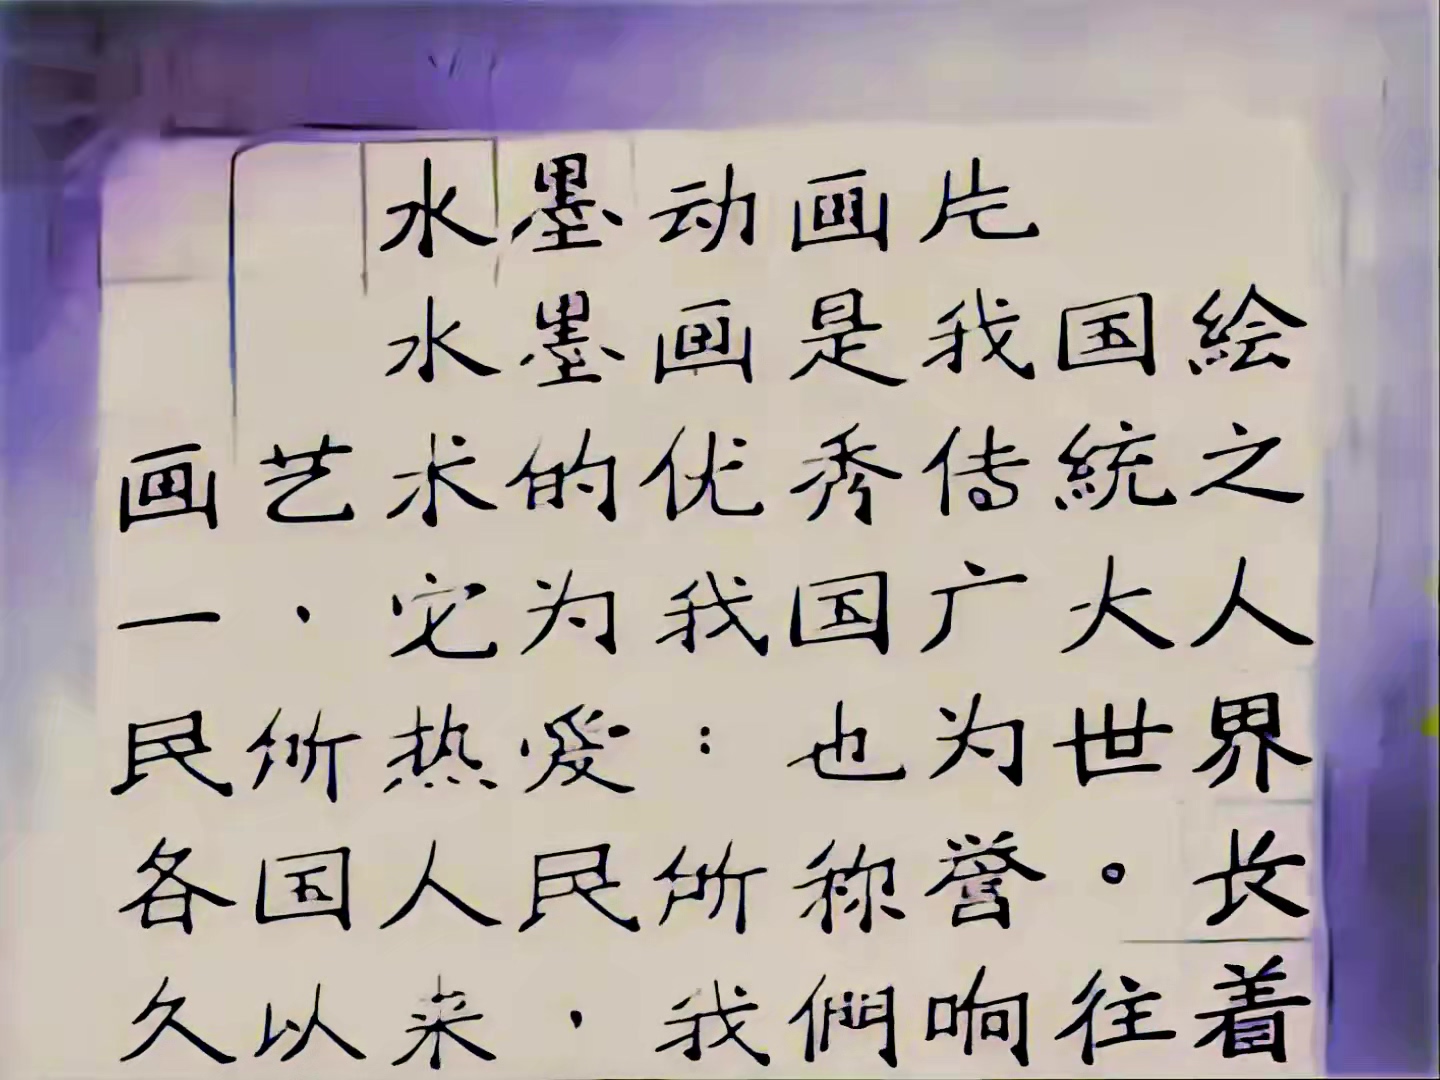 水墨动画片
水墨画是我国絵
画艺术的优秀传統之
一，它为我国广大人
民所热爱：也为世界
各国人民所称誉。长
久以来，我們响往着